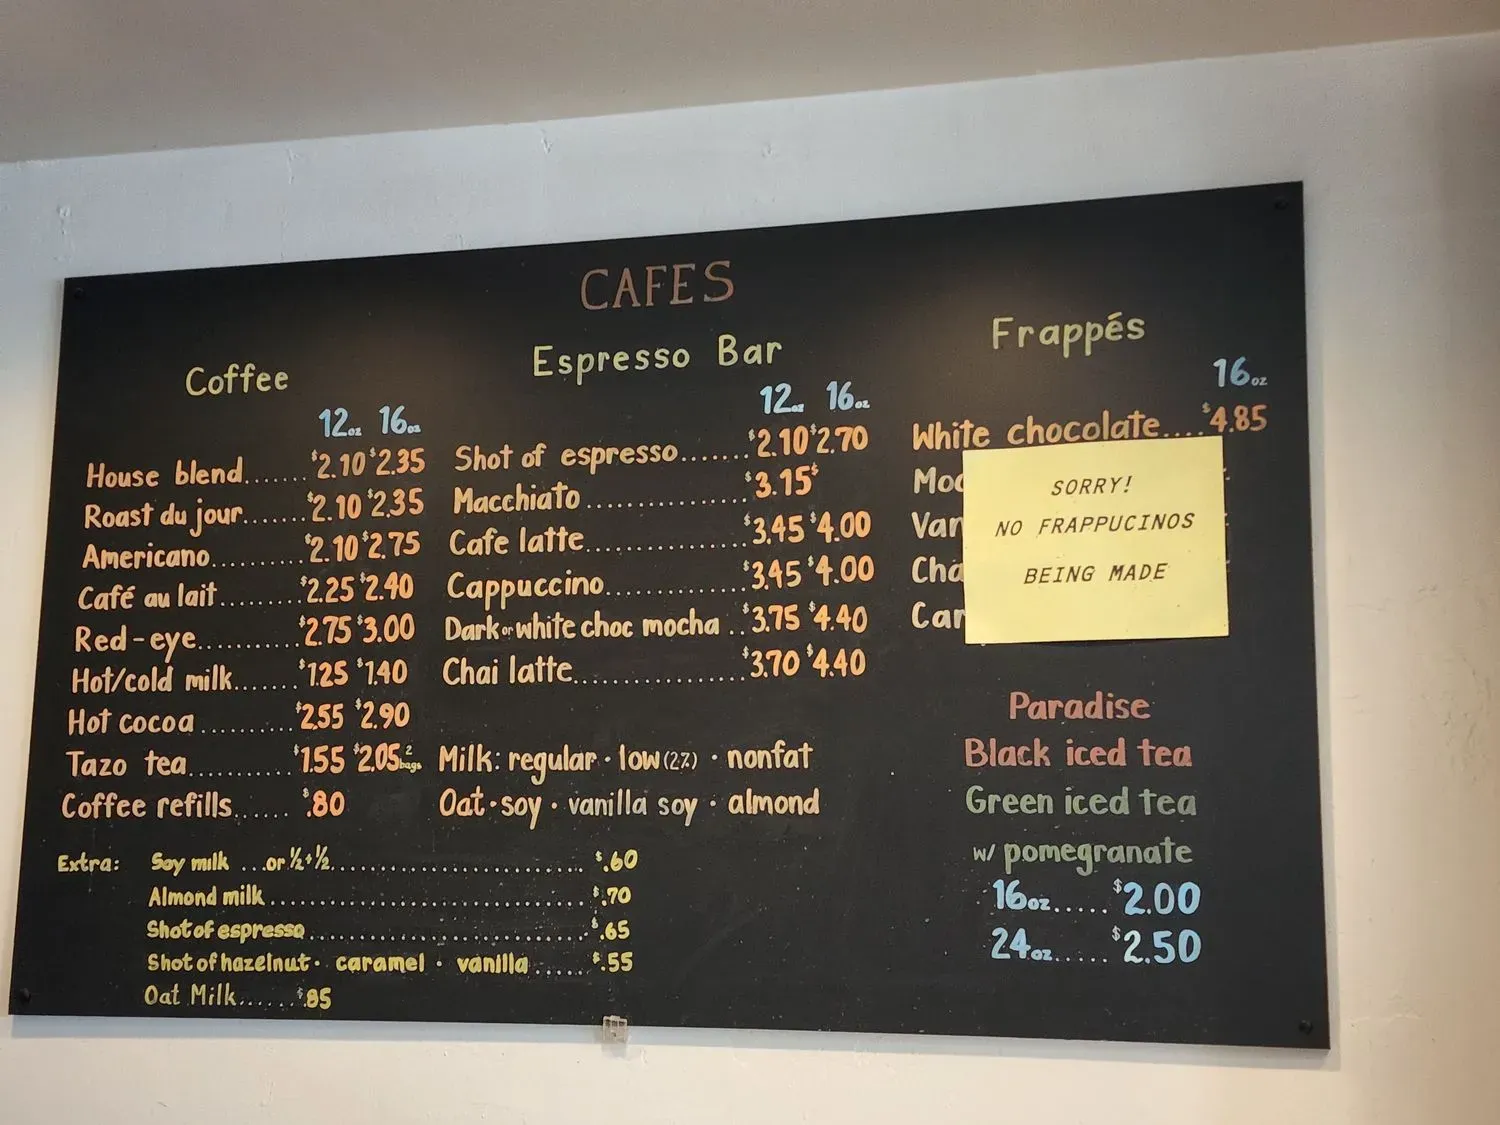 CAFES
Coffee
12oz 16oz
House blend....... $2.10 $2.35
Roast du jour....... $2.10 $2.35
Americano......... $2.10 $2.75
Café au lait........ $2.25 $2.40
Red-eye.......... $2.75 $3.00
Hot/cold milk....... $1.25 $1.40
Hot cocoa ......... $2.55 $2.90
Tazo tea.......... $1.55 $2.05 2 bags
Coffee refills...... $.80
Espresso Bar
12oz 16oz
Shot of espresso....... $2.10 $2.70
Macchiato ................ $3.15 $
Cafe latte................ $3.45 $4.00
Cappuccino.............. $3.45 $4.00
Dark or white choc mocha .. $3.75 $4.40
Chai latte................. $3.70 $4.40
Milk: regular · low (2%) · nonfat
Oat · soy · vanilla soy · almond
Extra: Soy milk ...or ½+½.............................. $.60
Almond milk...................................... $.70
Shot of espresso................................. $.65
Shot of hazelnut · caramel · vanilla ...... $.55
Oat Milk...... $.85
Frappés
16oz
White chocolate.... $4.85
SORRY!
NO FRAPPUCINOS
BEING MADE
Paradise
Black iced tea
Green iced tea
w/ pomegranate
16oz..... $2.00
24oz..... $2.50